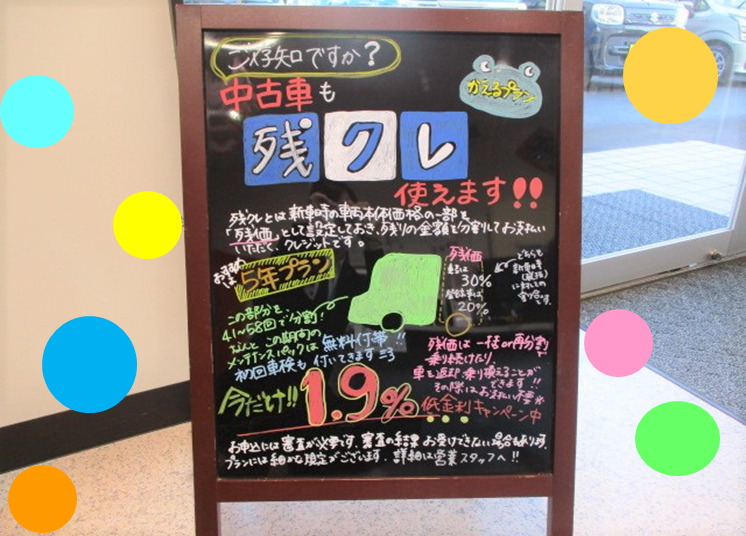 ご存知ですか？
かえるプラン
中古車も
残クレ
使えます!!
残クレとは新車時の車両本体価格の一部を
「残価」として設定しておき、残りの金額を分割してお支払い
いただく、クレジットです。
おすすめは
5年プラン
残価
30%
20%
どちらも
新車時
この部分を、
41〜58回で分割！
なんと この期間の
メンテナンスパックは 無料付帯!!
初回車検も 付いてきます
残価は 一括or再分割
乗り続けたり、
車を返却、乗り換えることが
できます!!
その際はお支払い不要※
今だけ!! 1.9%
低金利キャンペーン中
お申込には審査が必要です。審査の結果 お受けできない場合もあります。
プランには細かな規定がございます。詳細は営業スタッフへ!!